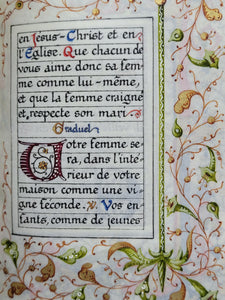 en Jésus-Christ et en
l'Eglise. Que chacun de
vous aime donc sa fem
me comme lui-même,
et que la femme craigne
et, respecte son mari-
Graduel
Votre femme se
ra, dans l'inté
rieur de votre
maison comme une vi
gne féconde. Vos en
fants, comme de jeunes